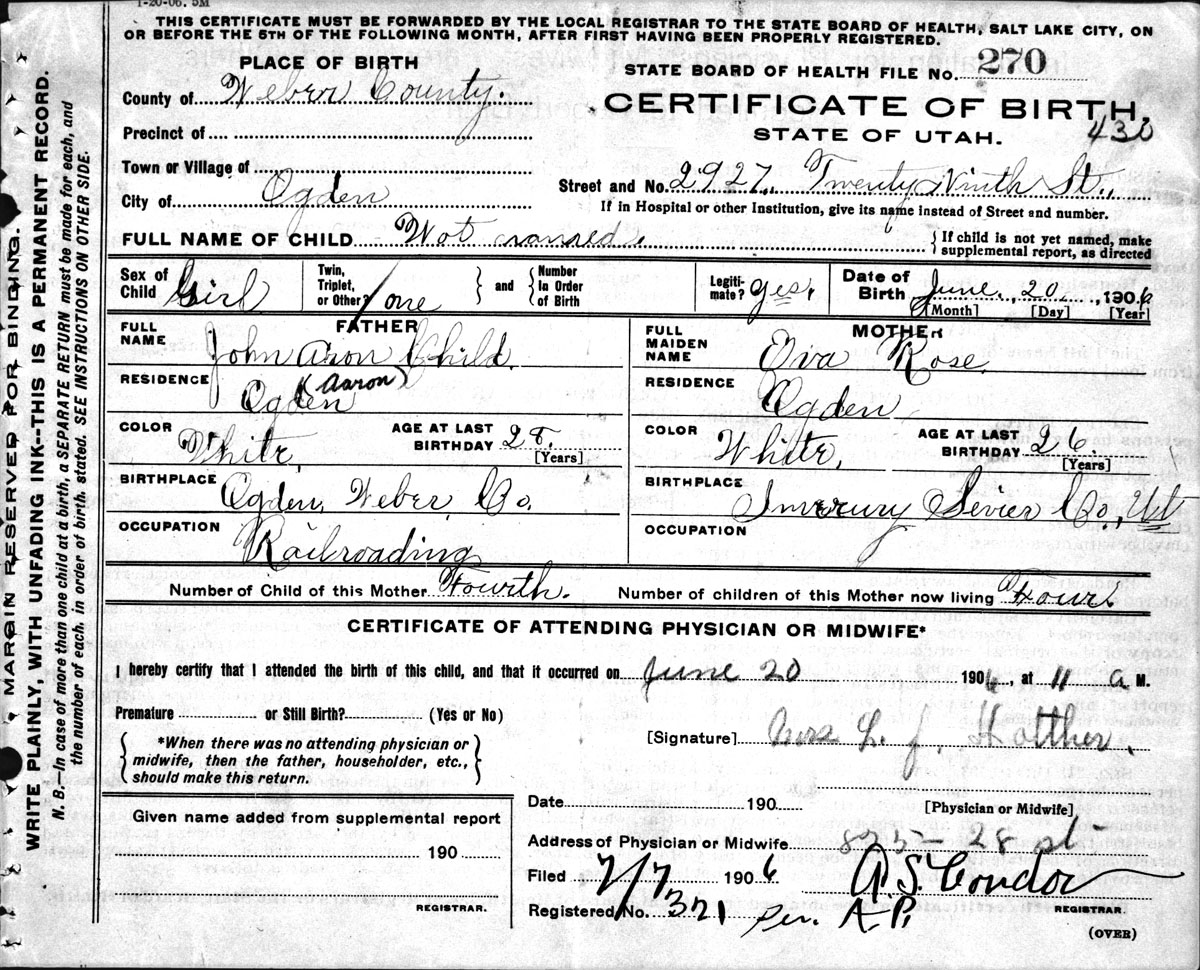 1-20-06. 5M
THIS CERTIFICATE MUST BE FORWARDED BY THE LOCAL REGISTRAR TO THE STATE BOARD OF HEALTH, SALT LAKE CITY, ON
OR BEFORE THE 5TH OF THE FOLLOWING MONTH, AFTER FIRST HAVING BEEN PROPERLY REGISTERED.
MARGIN RESERVED FOR BINDING.
WRITE PLAINLY, WITH UNFADING INK--THIS IS A PERMANENT RECORD.
N. B.--In case of more than one child at a birth, a SEPARATE RETURN must be made for each, and
the number of each, in order of birth, stated. SEE INSTRUCTIONS ON OTHER SIDE.
PLACE OF BIRTH
County of Weber County.
Precinct of
Town or Village of
City of Ogden
STATE BOARD OF HEALTH FILE No. 270
CERTIFICATE OF BIRTH.
STATE OF UTAH. 430
Street and No. 2927. Twenty Ninth St.,
If in Hospital or other Institution, give its name instead of Street and number.
FULL NAME OF CHILD Not named. { If child is not yet named, make
supplemental report, as directed
Sex of Child Girl
Twin, Triplet, or Other? one } and { Number in Order of Birth
Legitimate? yes.
Date of Birth June. 20., 1906
[Month] [Day] [Year]
FATHER
FULL NAME John Aron Child.
(Aaron)
RESIDENCE Ogden
COLOR White, AGE AT LAST BIRTHDAY 28.
[Years]
BIRTHPLACE Ogden, Weber, Co.
OCCUPATION Railroading
MOTHER
FULL MAIDEN NAME Eva Rose.
RESIDENCE Ogden
COLOR White, AGE AT LAST BIRTHDAY 26.
[Years]
BIRTHPLACE Sevier Co., Ut
OCCUPATION
Number of Child of this Mother Fourth. Number of children of this Mother now living Four.
CERTIFICATE OF ATTENDING PHYSICIAN OR MIDWIFE*
I hereby certify that I attended the birth of this child, and that it occurred on June 20 1906, at 11 a M.
Premature or Still Birth? (Yes or No)
{ *When there was no attending physician or
midwife, then the father, householder, etc.,
should make this return. }
[Signature] Mrs L. J. Holther.
Date 190
[Physician or Midwife]
Given name added from supplemental report
190
REGISTRAR.
Address of Physician or Midwife 835 - 28 st
Filed 7/7 1906 A S. Condon
Registered No. 321 per. A-P. REGISTRAR.
(OVER)